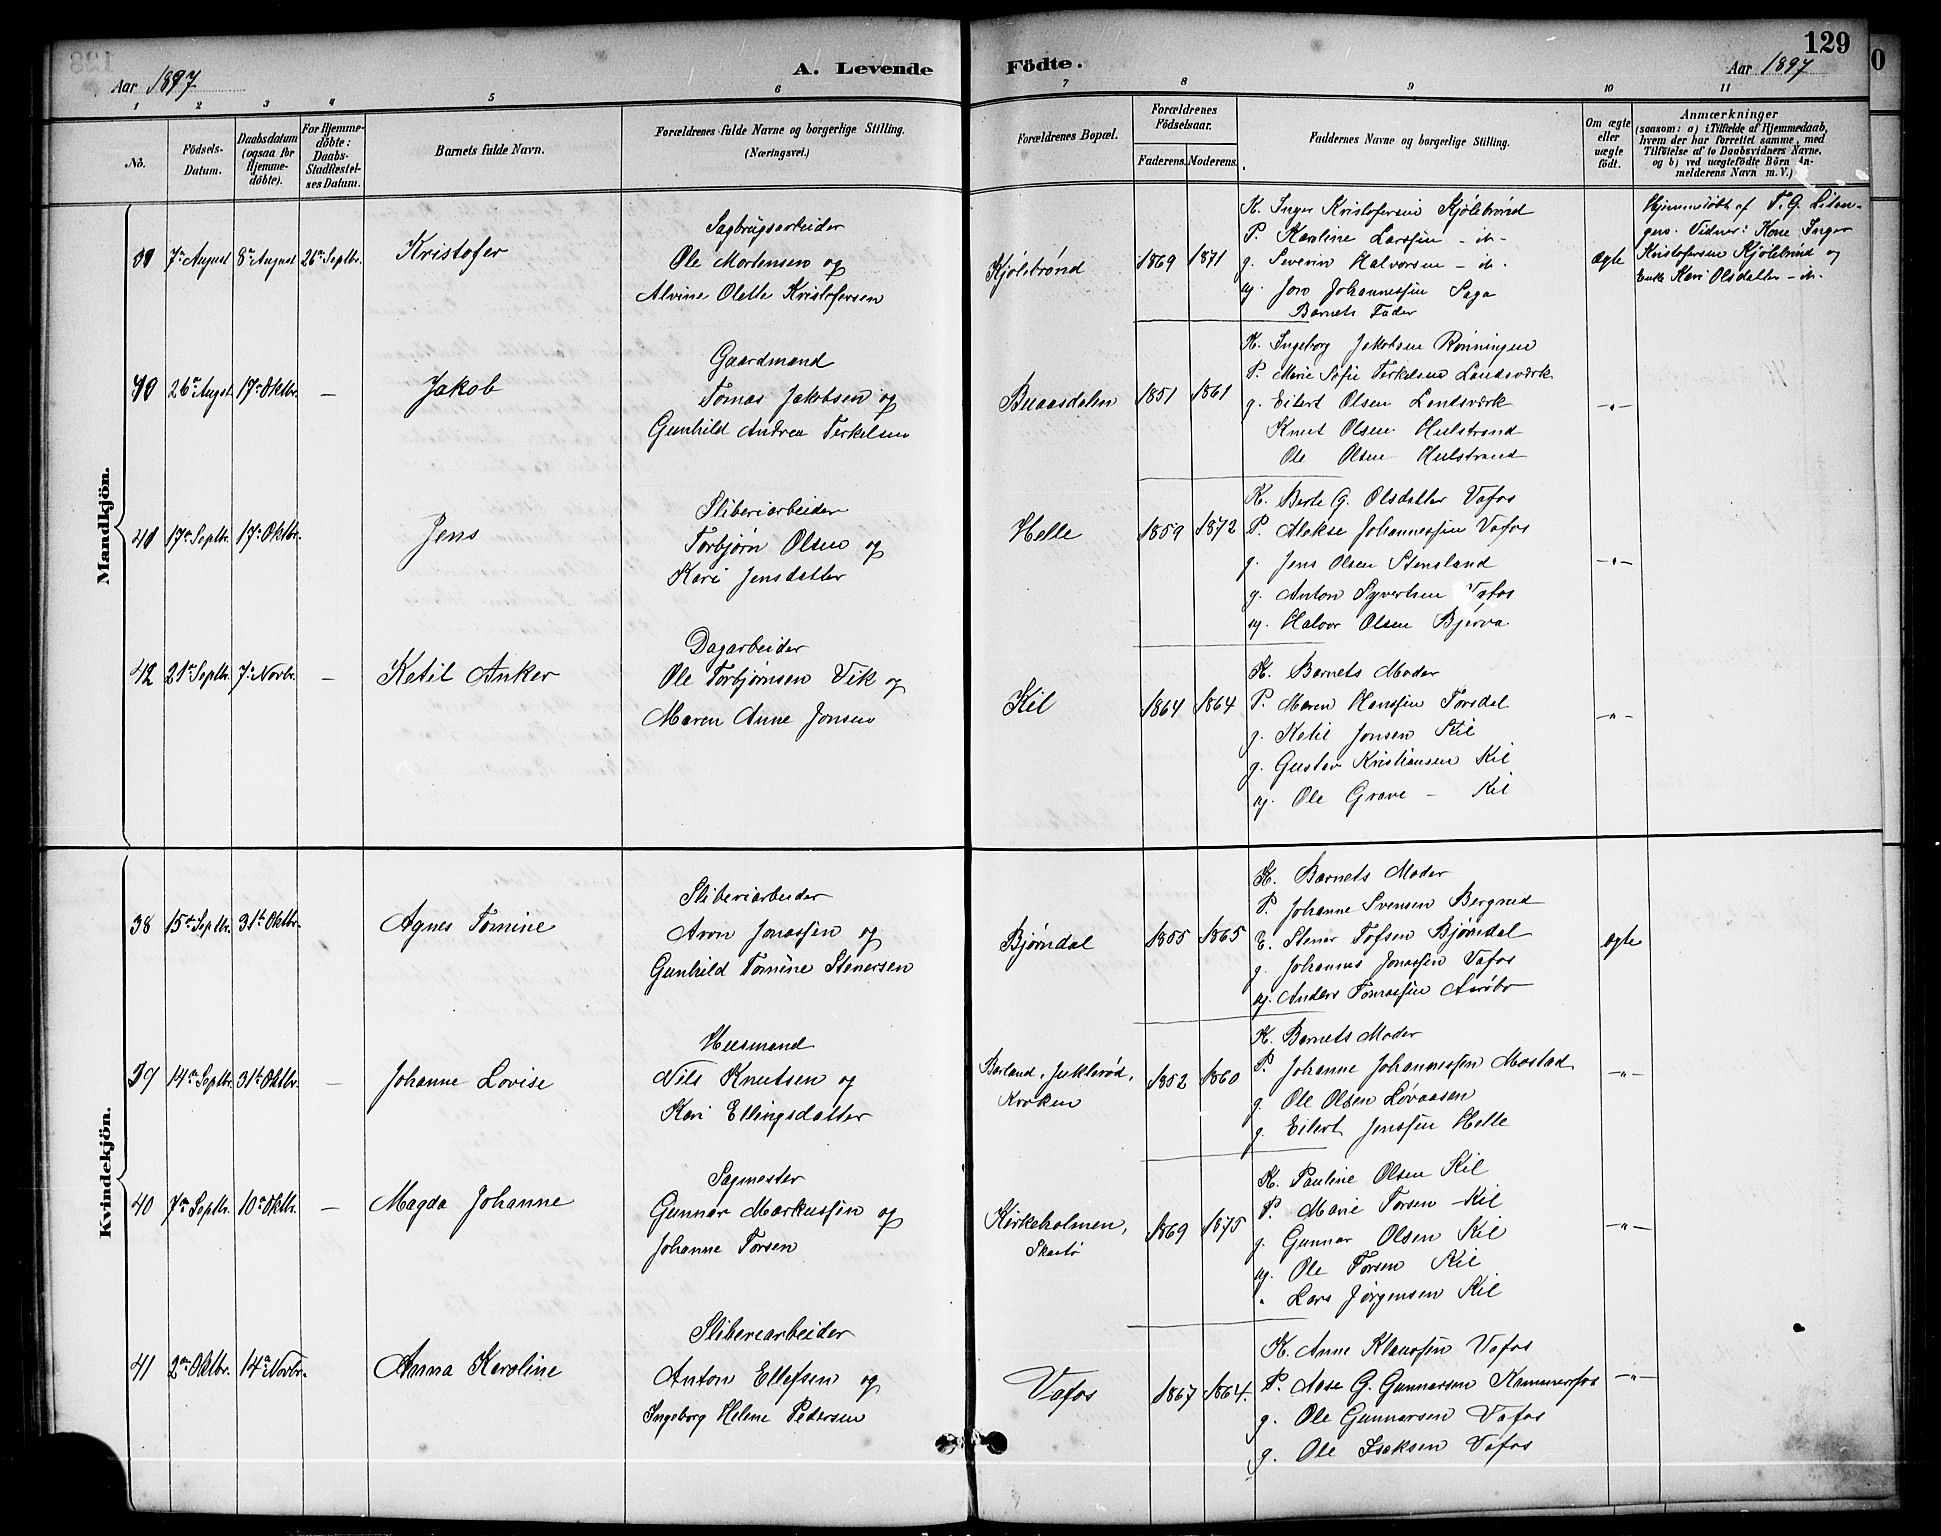 129
Aar 1897
A. Levende Födte.
Aar 1897
1 2 3 4 5 6 7 8 9 10 11
No.
Födsels-Datum.
Daabsdatum (ogsaa for Hjemme-döbte).
For Hjemme-döbte: Daabs-Stadfæstel-ses Datum.
Barnets fulde Navn.
Forældrenes fulde Navne og borgerlige Stilling. (Næringsvei.)
Forældrenes Bopæl.
Forældrenes Födselsaar.
Faderens. Moderens.
Faddernes Navne og borgerlige Stilling.
Om ægte eller uægte födt.
Anmærkninger
(saasom: a) i Tilfælde af Hjemmedaab,
hvem der har forrettet samme, med
Tilföielse af to Daabsvidners Navne,
og b) ved uægtefödte Börn An-
melderens Navn m. V.)
Mandkjön.
39 7de August 8de August 26de Septbr. Kristofer
Sagbrugsarbeider
Ole Mortensen og
Alvine Olette Kristofersen
Kjølebrønd 1869 1871
K. Inger Kristofersen Kjølebrønd
P. Karoline Larssen - ib -
g. Severin Halvorsen - ib.
ug. Jon Johannessen Saga
Barnets Fader
ægte
Hjemmedøbt af T. G. Litan-
gen. Vidner: Kone Inger
Kristofersen Kjølebrønd og
Enke Kari Olsdatter - ib.
40 26de Augst 17de Oktbr. — Jakob
Gaardmand
Tomas Jakobsen og
Gunhild Andrea Terkelsen
Buaasdalen 1851 1861
K. Ingeborg Jakobsen Rønningen
P. Marie Sofie Terkelsen Landsværk
g. Eilert Olsen Landsværk
Knut Olsen Hulstrand
Ole Olsen Hulstrand
—„—
41 17de Septbr. 17de Oktbr. Jens
Sliberiarbeider
Torbjørn Olsen og
Kari Jensdatter
Helle 1859 1872
K. Berte G. Olsdatter Vafos
P. Alekse Johannessen Vafos
g. Jens Olsen Stensland
g. Anton Syvertsen Vafos
ug. Halvor Olsen Bjerva
—„—
42 21de Septbr. 7de Novbr. — Ketil Anker
Dagarbeider
Ole Torbjørnsen Vik og
Maren Anne Jonsen
Kil 1864 1864
K. Barnets Moder
P. Maren Hanssen Torsdal
g. Ketil Jonsen Kil
g. Gustav Kristiansen Kil
ug. Ole Grave - Kil
—„—
Kvindekjön.
38 15de Septbr. 31te Oktbr. Agnes Tomine
Sliberiarbeider
Aron Jonassen og
Gunhild Tomine Stenersen
Bjørndal 1855 1865
K. Barnets Moder
P. Johanne Svensen Bergrud
E. Stener Tofsen Bjørndal
g. Johannes Jonassen Vafos
ug. Anders Tomassen Aarøbo
ægte
39 14de Septbr. 31te Oktbr. — Johanne Lovise
Husmand
Nils Knutsen og
Kari Ellingsdatter
Barland, Juklerød,
Kroken 1852 1860
K. Barnets Moder
P. Johanne Johannessen Mostad
g. Ole Olsen Løvaasen
g. Eilert Jenssen Helle
—„—
40 7de Septbr. 10de Oktbr. — Magda Johanne
Sagmester
Gunnar Markussen og
Johanne Torsen
Kirkeholmen,
Skaatø 1869 1875
K. Pauline Olsen Kil
P. Marie Torsen - Kil
g. Gunnar Olsen Kil
ug. Ole Torsen Kil
„ Lars Jørgensen Kil
—„—
41 2den Oktbr. 14de Novbr. Anna Karoline
Sliberiarbeider
Anton Ellefsen og
Ingeborg Helene Pedersen
Vafos 1867 1864
K. Anne Klaussen Vafos
P. Aase G. Gunnarsen Kammerfos
g. Ole Gunnarsen Vafos
g. Ole Isaksen Vafos
—„—